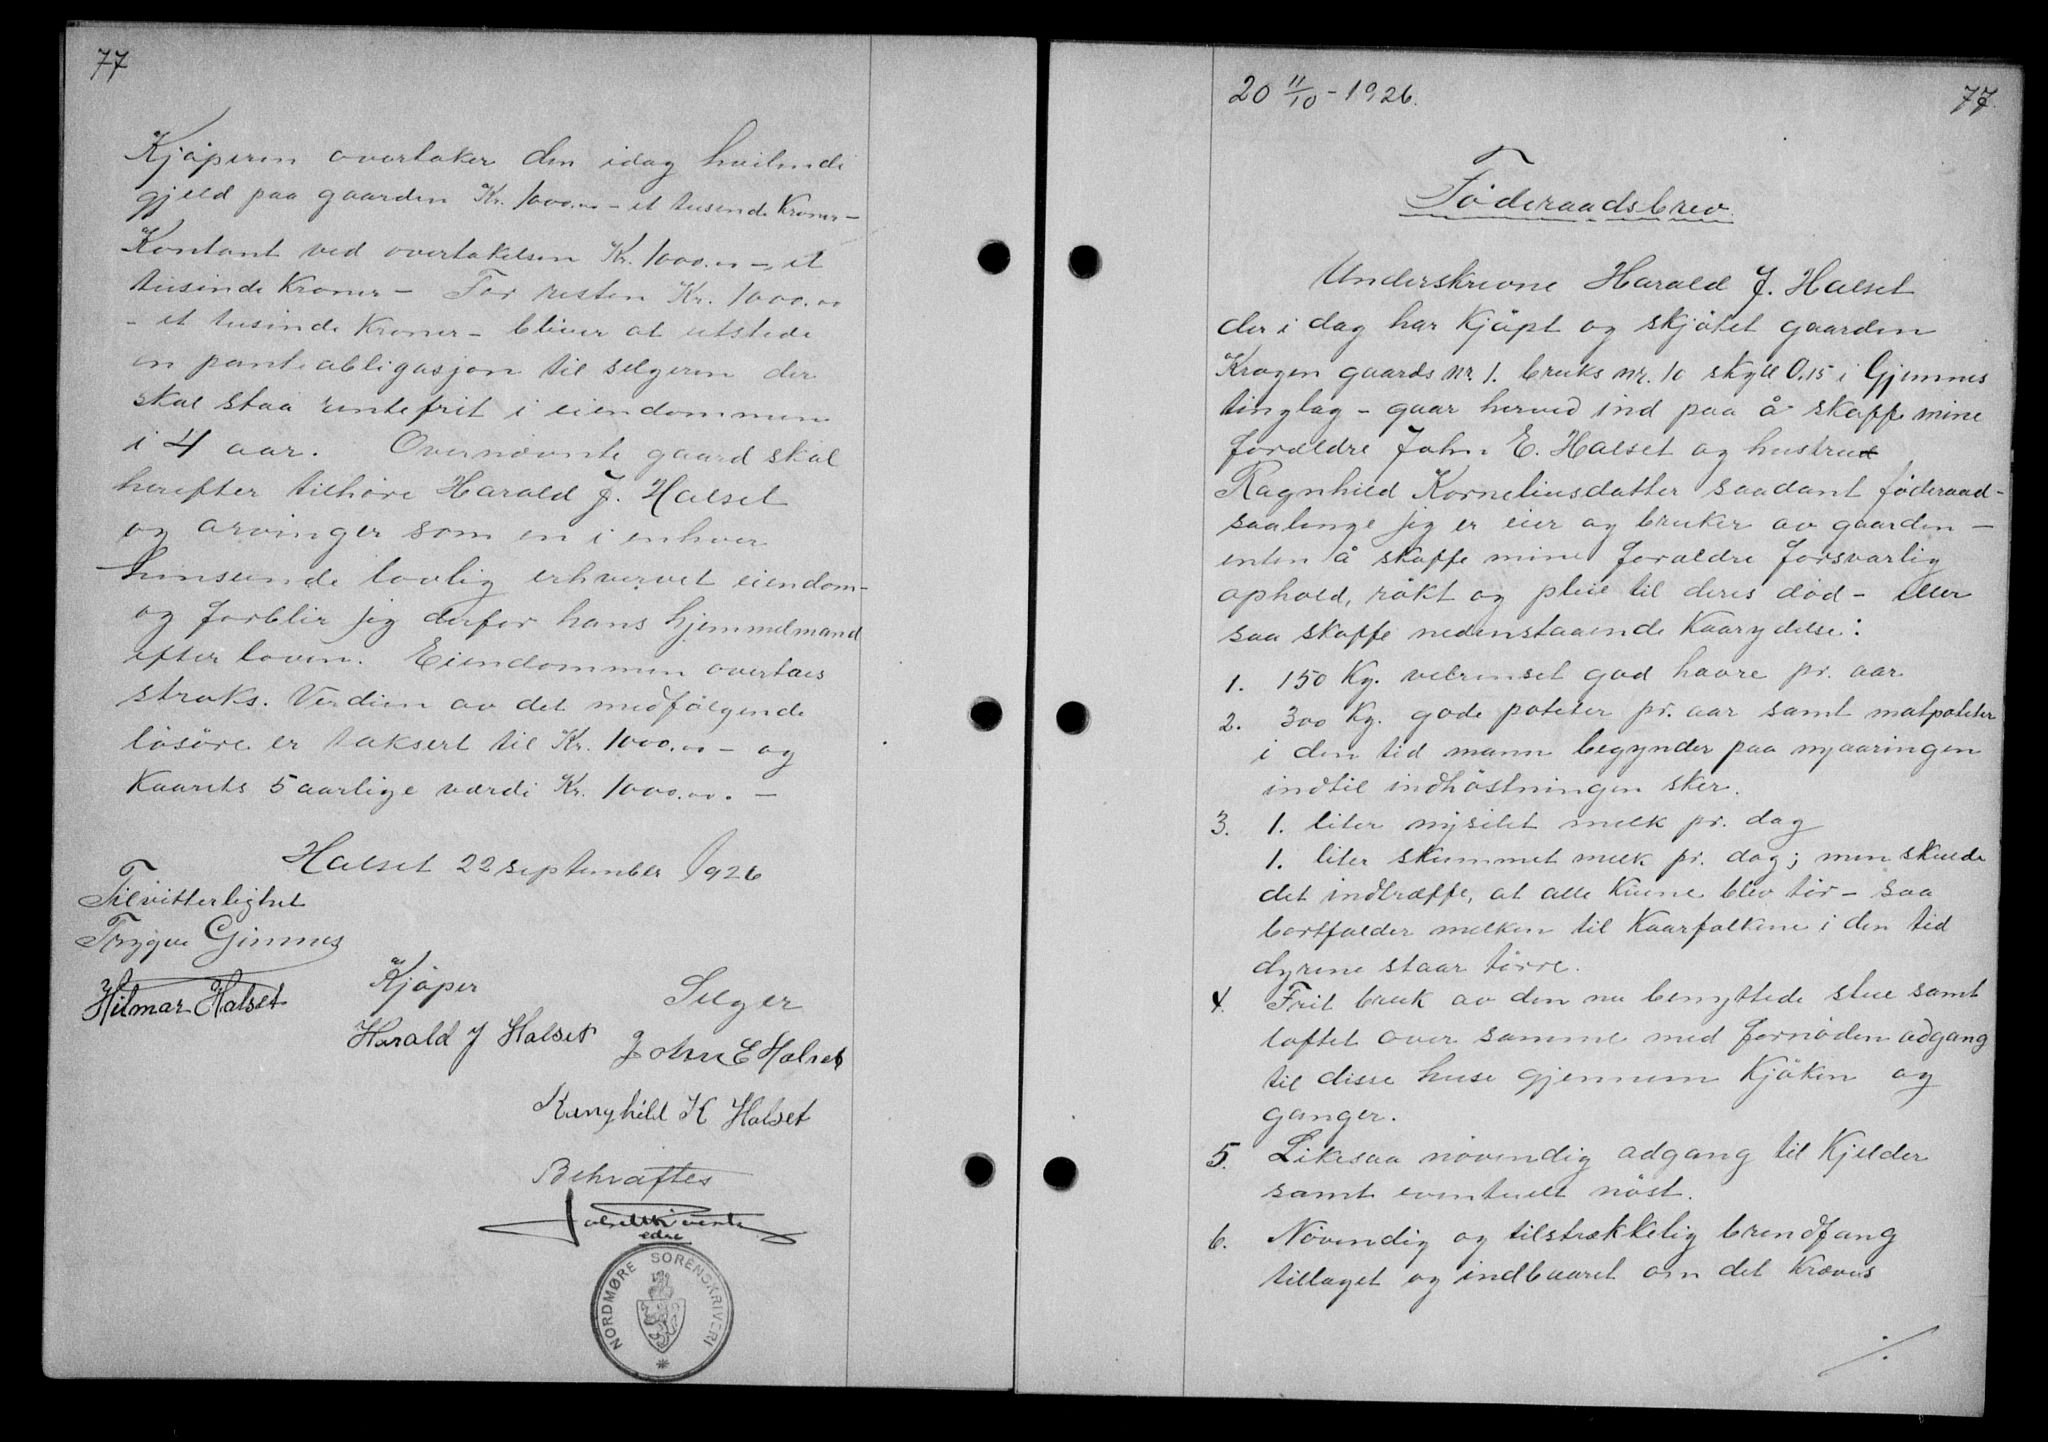 77
Kjøperen overtaker den idag hvilende
gjeld paa gaarden Kr. 1000.00 - et tusende Kroner -
Kontant ved overtakelsen Kr. 1000.00 -, et
tusinde Kroner - For resten Kr. 1000.00
- et tusinde Kroner - bliver at utstede
en panteobligasjon til selgeren der
skal staa rentefrit i eiendommen
i 4 aar. Overnævnte gaard skal
herefter tilhøre Harald J. Halset
og arvinger som en i enhver
hinseende lovlig erhvervet eiendom -
og forblir jeg derfor hans hjemmelmand
efter loven. Eiendommen overtaes
straks. Verdien av det medfølgende
løsøre er taksert til Kr. 1000.00 - og
Kaarets 5 aarlige værdi Kr. 1000.00. -
Halset 22 september 1926
Tilvitterlighet
Trygve Gimnes
Hilmar Halset
Kjøper
Selger
Harald J Halset
John E Halset
Ranghild K Halset
Bekræftes
edre
NORDMØRE SORENSKRIVERI
20 11/10 - 1926.
77.
Føderaadsbrev.
Underskrevne Harald J. Halset
der i dag har Kjøpt og skjøtet gaarden
Krogen gaards nr. 1. bruks nr. 10 skyll 0,15 i Gjemnes
tinglag - gaar herved ind paa å skaffe mine
foreldre John E. Halset og hustru
Ragnhild Korneliusdatter saadant føderaad -
saalenge jeg er eier og bruker av gaarden -
enten å skaffe mine foreldre forsvarlig
ophold, røkt og pleie til deres død - eller
saa skaffe nedenstaaende Kaarydelse:
1. 150 Kg. velrenset god havre pr. aar
2. 300 Kg. gode poteter pr. aar samt matpoteter
i den tid mann begynder paa nyaaringen
indtil indhøstningen sker.
3. 1. liter nysilet melk pr. dag
1. liter skummet melk pr. dag; men skulde
det indtræffe, at alle Kuene blev tør - saa
bortfalder melken til Kaarfolkene i den tid
dyrene staar tørre.
4. Frit bruk av den nu benyttede stue samt
loftet over samme med fornøden adgang
til disse huse gjennem Kjøken og
ganger.
5. Likesaa nøvendig adgang til Kjelder
samt eventuelt nøst.
6. Nøvendig og tilstrækkelig brendfang
tillaget og indbaaret om det Kræves
./.